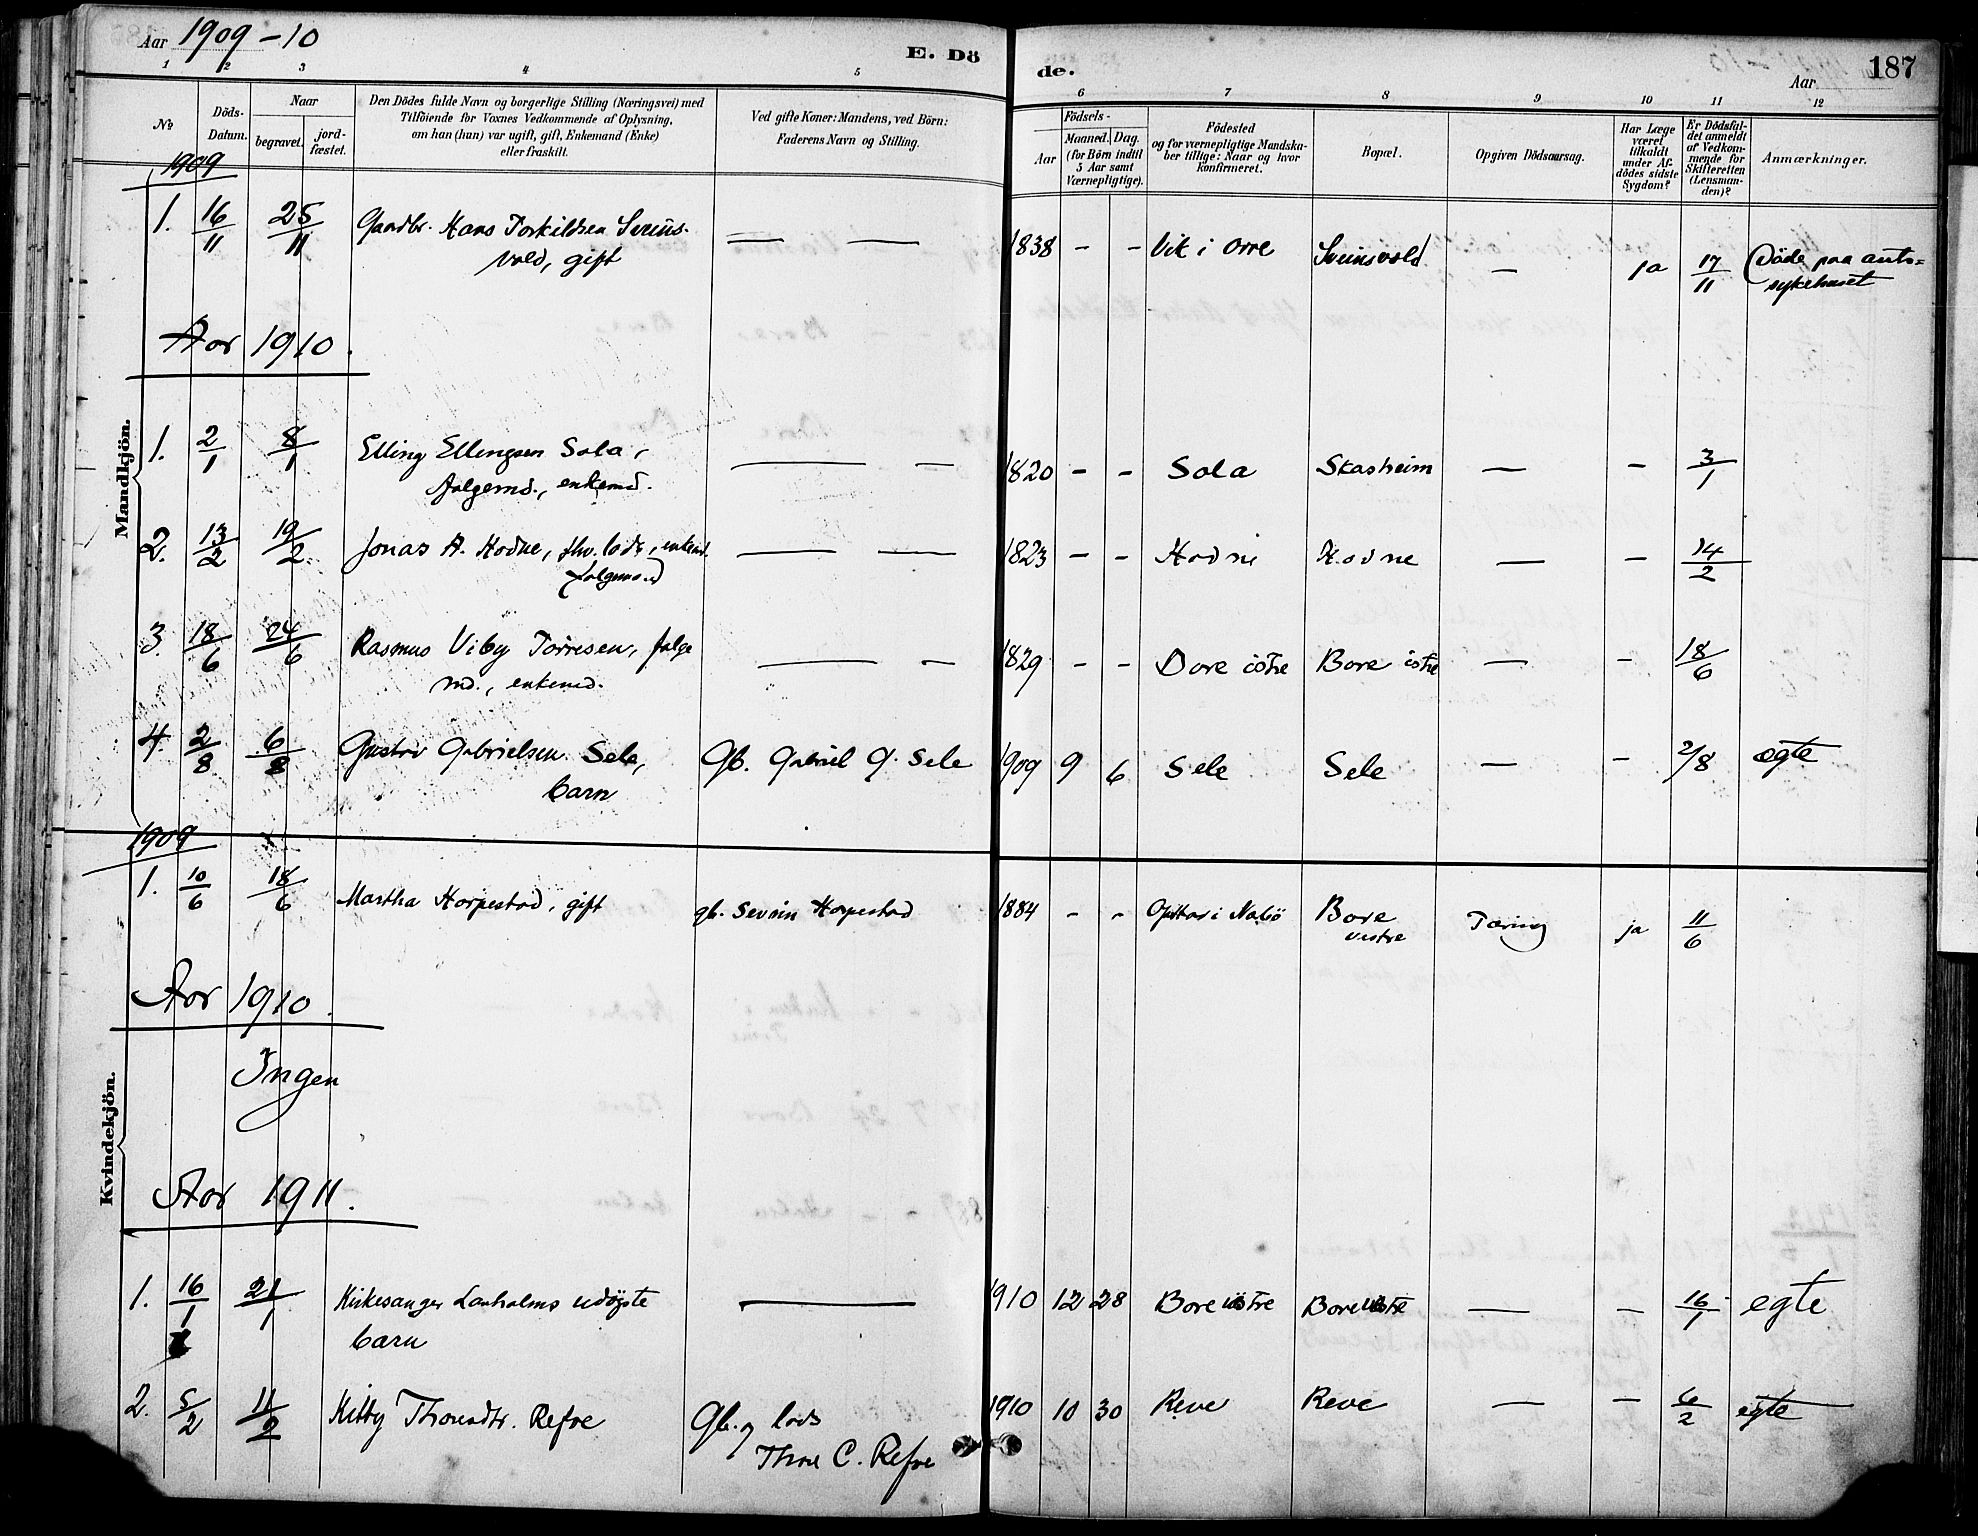 Aar 1909-10
E. Dö
de.
187
Aar
1 2 3 4 5 6 7 8 9 10 11 12
No
Döds-
Datum.
Naar
begravet.
jord-
fæstet.
Den Dödes fulde Navn og borgerlige Stilling (Næringsvei) med
Tilföiende for Voxnes Vedkommende af Oplysning,
om han (hun) var ugift, gift, Enkemand (Enke)
eller fraskilt.
Ved gifte Koner: Mandens, ved Börn:
Faderens Navn og Stilling.
Födsels-
Aar
Maaned. Dag.
(for Börn indtil
5 Aar samt
Værnepligtige).
Födested
og for værnepligtige Mandska-
ber tillige: Naar og hvor
konfirmeret.
Bopæl.
Opgiven Dödsaarsag.
Har Læge
været
tilkaldt
under Af-
dödes sidste
Sygdom?
Er Dödsfal-
det anmeldt
af Vedkom-
mende for
Skifteretten
(Lensman-
den)?
Anmærkninger.
Mandkjön.
1909
1. 16/11 25/11 Gaardbr. Hans Torkildsen Sveins- — — 1838 - - Vik i Orre Sveinsvold — ja 17/11 Döde paa amts=
vold, gift sykehuset
Aar 1910.
1. 2/1 8/1 Elling Ellingsen Sola, — — 1820 - - Sola Skasheim — - 3/1
folgemd., enkemd.
2. 13/2 19/2 Jonas A. Hodne, fhv. lods, enkemd. — — 1823 - - Hodne Hodne — - 14/2
folgemand
3. 18/6 24/6 Rasmus Viby Torresen, folge — — 1829 - - Bore östre Bore östre — - 18/6
md., enkemd.
4. 2/8 6/8 Gustav Gabrielsen Sele, Gb. Gabriel G. Sele 1909 9 6 Sele Sele — - 2/8 ægte
barn
Kvindekjön.
1909
1. 10/6 18/6 Martha Horpestad, gift gb. Sevrin Horpestad 1884 - - Opstad i Nabö Bore Tæring ja 11/6
vestre
Aar 1910.
Ingen
Aar 1911.
1. 16/1 21/1 Kirkesanger Lauholms udöpte — 1910 12 28 Bore östre Bore östre — - 16/1 egte
barn
2. 5/2 11/2 Kitty Thorsdtr. Refve Gb. og lods 1910 10 30 Reve Reve — - 6/2 egte
C. Refve